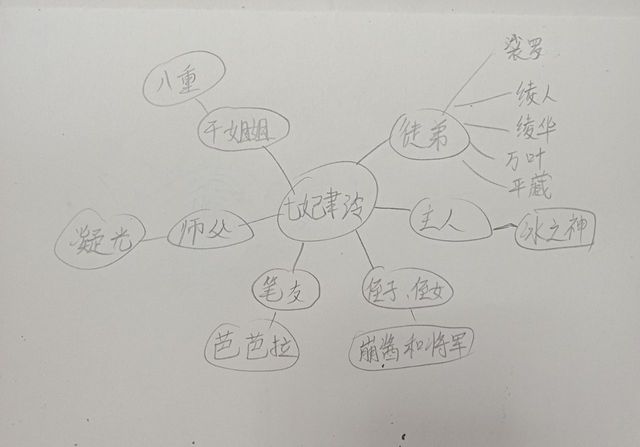 八重
干姐姐
凝光
师父
七妃聿泠
徒弟
裟罗
绫人
绫华
万叶
平藏
主人
冰之神
笔友
芭芭拉
侄子、侄女
崩酱和将军